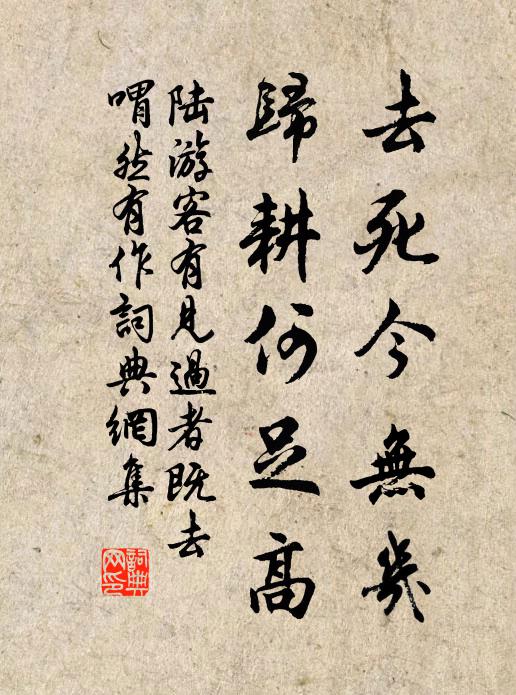 去死今無幾
歸耕何足高
陆游客有見過者既去
喟然有作詞典網集
詞典網印